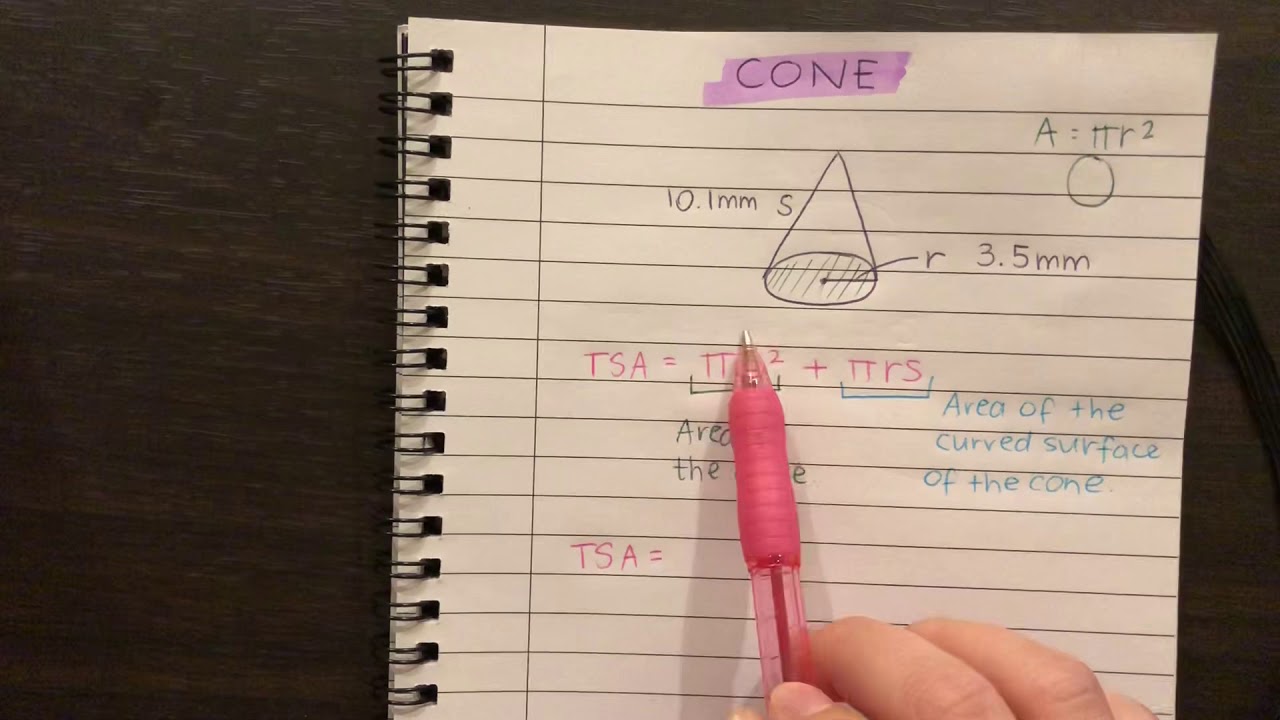 CONE
A = πr²
10.1mm s
r 3.5mm
TSA = π ² + πrs
Area of the
curved surface
of the cone.
the
TSA =